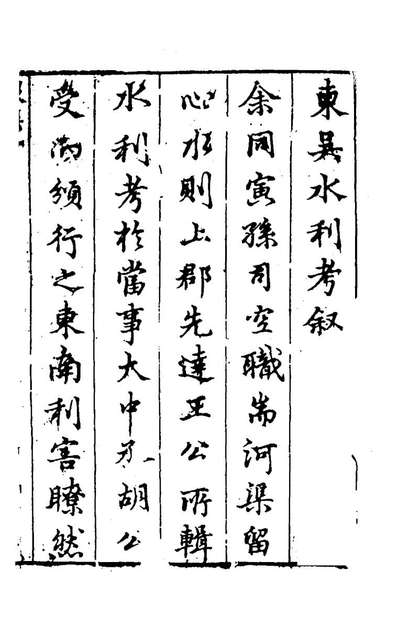 東吳水利考叙
余同寅孫司空職耑河渠留
心水則上郡先達王公所輯
水利考於當事大中丞胡公
受而頒行之東南利害瞭然